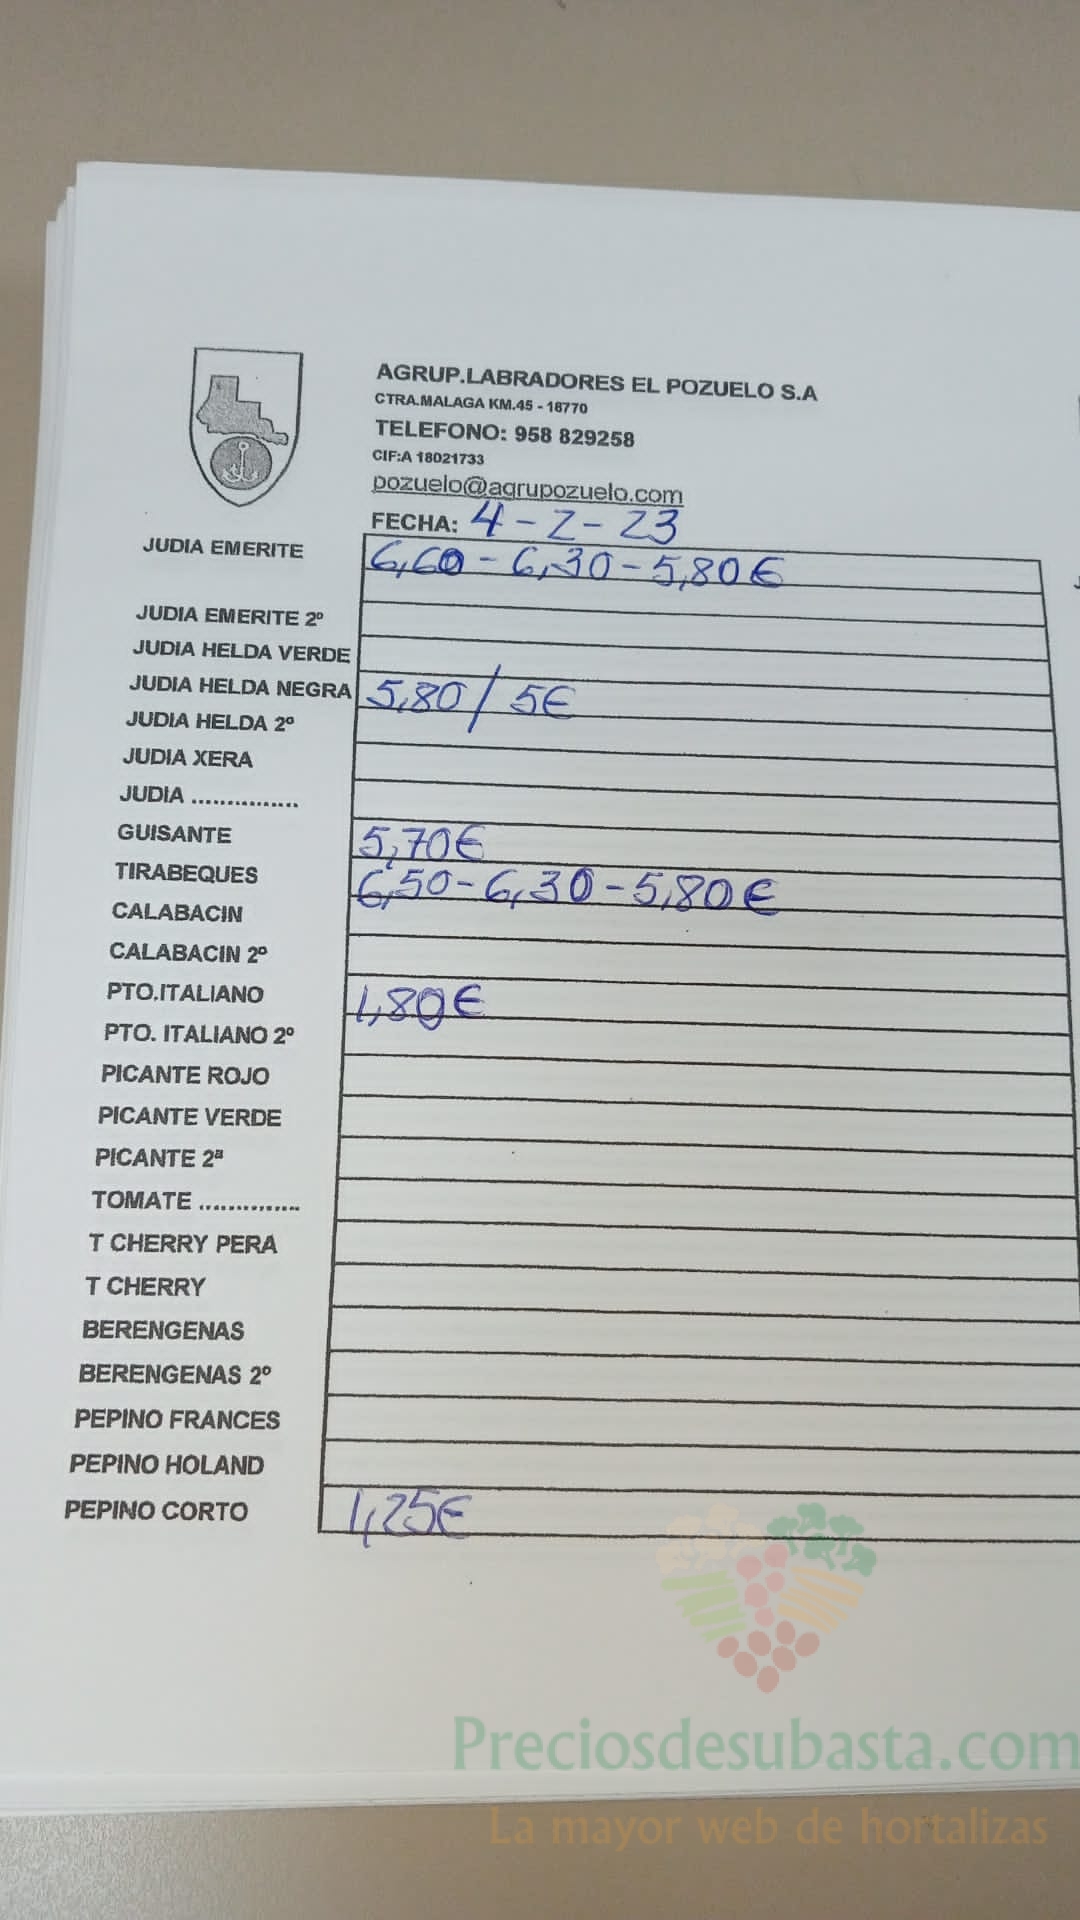 AGRUP.LABRADORES EL POZUELO S.A
CTRA.MALAGA KM.45 - 18770
TELEFONO: 958 829258
CIF:A 18021733
pozuelo@agrupozuelo.com
FECHA: 4-2-23
JUDIA EMERITE 6,60 - 6,30 - 5,80€
JUDIA EMERITE 2º
JUDIA HELDA VERDE
JUDIA HELDA NEGRA 5,80 / 5€
JUDIA HELDA 2º
JUDIA XERA
JUDIA ...............
GUISANTE 5,70€
TIRABEQUES 6,50 - 6,30 - 5,80€
CALABACIN
CALABACIN 2º
PTO.ITALIANO 1,80€
PTO. ITALIANO 2º
PICANTE ROJO
PICANTE VERDE
PICANTE 2ª
TOMATE ..............
T CHERRY PERA
T CHERRY
BERENGENAS
BERENGENAS 2º
PEPINO FRANCES
PEPINO HOLAND
PEPINO CORTO 1,25€
Preciosdesubasta.com
La mayor web de hortalizas